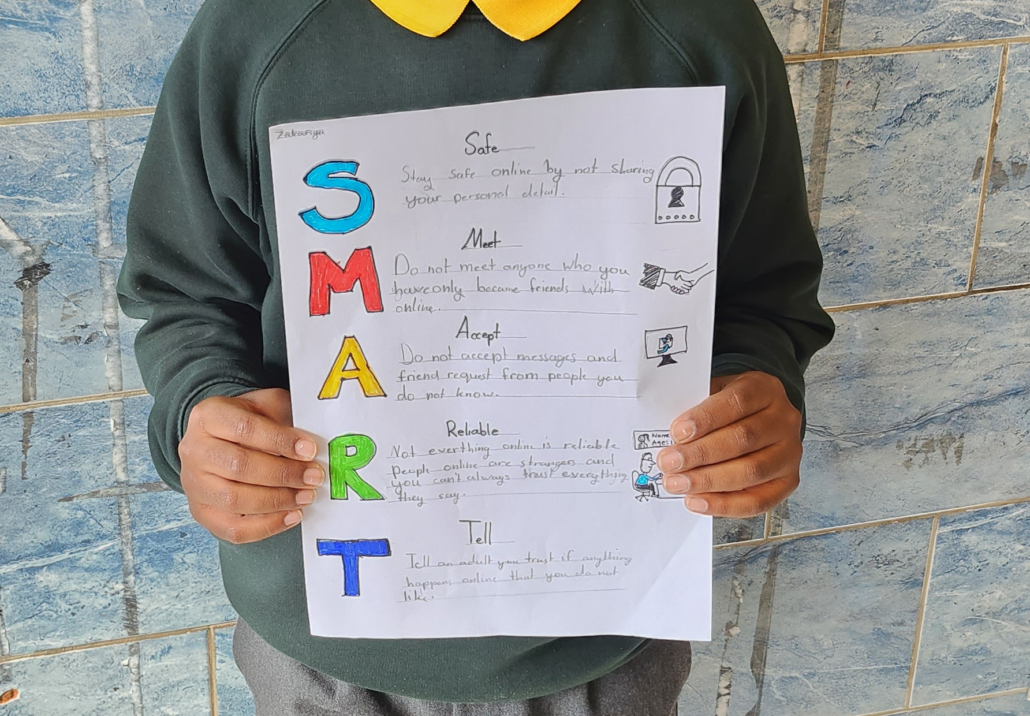 Zakariya
Safe
S
Stay safe online by not sharing
your personal detail.
Meet
M
Do not meet anyone who you
have only became friends with
online.
Accept
A
Do not accept messages and
friend request from people you
do not know.
Reliable
R
Not everthing online is reliable
people online are strangers and
you can't always trust everything
they say.
Name
Age:
Tell
T
Tell an adult you trust if anything
happens online that you do not
like.